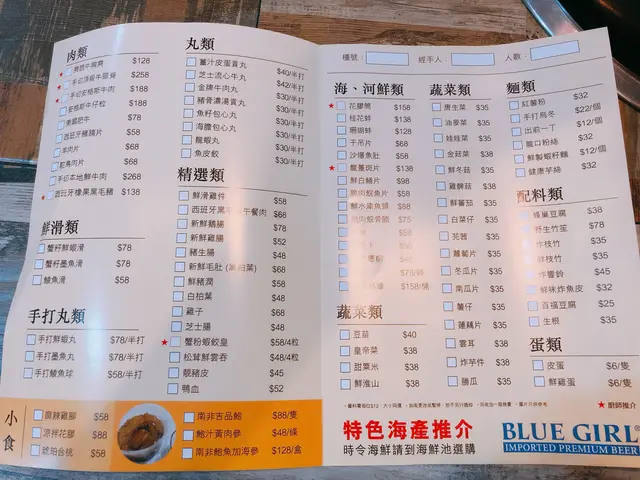 肉類
$128
手切頂級牛頸脊 $258
手切安格斯牛肉 $188
安格斯牛仔粒 $188
美國肥牛 $78
西班牙豬腩片 $58
羊肉片 $68
鴕鳥肉片 $68
手切本地鮮牛肉 $268
西班牙橡果黑毛豬 $138
鮮滑類
蟹籽鮮蝦滑 $78
蟹籽墨魚滑 $78
鯪魚滑 $58
手打丸類
手打鮮蝦丸 $78/半打
手打墨魚丸 $78/半打
手打鯪魚球 $58/半打
丸類
薑汁皮蛋貢丸 $40/半打
芝士流心牛丸 $42/半打
金牌牛肉丸 $30/半打
豬骨濃湯貢丸 $30/半打
魚籽包心丸 $30/半打
海膽包心丸 $30/半打
龍蝦丸 $30/半打
魚皮餃 $30/半打
精選類
鮮滑雞件 $58
西班牙黑毛豬午餐肉 $68
新鮮鵝腸 $78
新鮮雞腸 $52
豬生腸 $48
新鮮毛肚 (黑柏葉) $68
鮮豬潤 $58
白柏葉 $48
雞子 $68
芝士腸 $48
蟹粉蝦餃皇 $58/4粒
松茸鮮雲吞 $48/4粒
靚豬皮 $45
鴨血 $52
櫃號：
經手人：
人數：
海、河鮮類
花膠筒 $158
桂花蚌 $138
珊瑚蚌 $128
干吊片 $68
沙爆魚肚 $58
龍躉斑片 $138
鮮白鱔片 $98
脆肉鯇魚片 $58
鮮水庫魚頭 $88
$75
$78/
$158/
蔬菜類
豆苗 $40
皇帝菜 $38
甜粟米 $38
鮮淮山 $38
蔬菜類
唐生菜 $35
油麥菜 $35
娃娃菜 $35
金菇菜 $38
鮮冬菇 $35
雞髀菇 $38
鮮薯茄 $35
白菜仔 $35
芫茜 $35
蘿蔔片 $35
冬瓜片 $35
南瓜片 $35
薯仔 $35
蓮藕片 $35
雲耳 $38
炸芋件 $38
勝瓜 $35
麵類
紅薯粉 $32
手打烏冬 $22/個
出前一丁 $12/個
龍口粉絲 $32
鮮製蝦籽麵 $12/個
健康芋絲 $32
配料類
蜂巢豆腐 $38
野生竹笙 $78
炸枝竹 $35
鮮枝竹 $35
炸響鈴 $45
鮮味炸魚皮 $32
百福豆腐 $25
生根 $35
蛋類
皮蛋 $6/隻
鮮雞蛋 $6/隻
★ 廚師推介
小食
麻辣雞腳 $58
涼拌花膠 $88
琥珀合桃 $58
南非吉品鮑 $88/隻
鮑汁黃肉參 $48/條
南非鮑魚加海參 $128/盒
特色海產推介
時令海鮮請到海鮮池選購
BLUE GIRL®
IMPORTED PREMIUM BEER